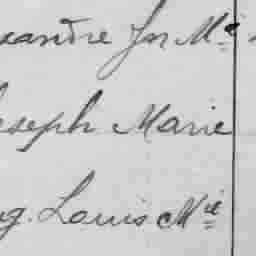 xandre Jn Mie
oseph Marie
ug. Louis Mie